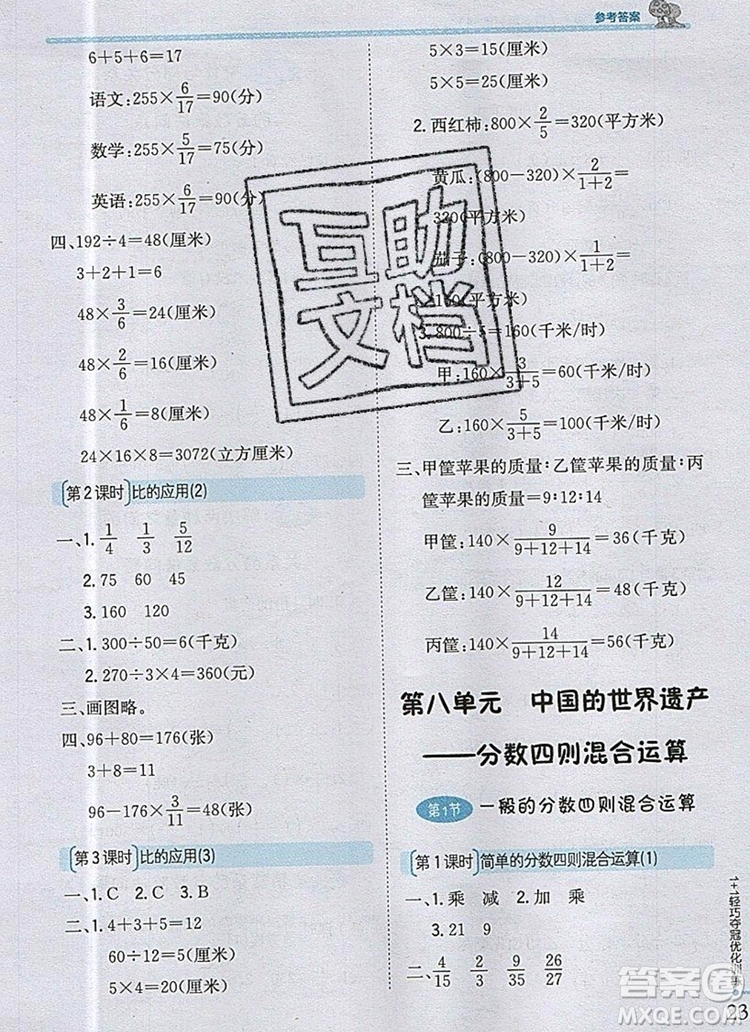 参考答案
6+5+6=17
语文:255×6/17=90(分)
数学:255×5/17=75(分)
英语:255×6/17=90(分)
四、192÷4=48(厘米)
3+2+1=6
48×3/6=24(厘米)
48×2/6=16(厘米)
48×1/6=8(厘米)
24×16×8=3072(立方厘米)
第2课时 比的应用(2)
一、1. 1/4 1/3 5/12
2. 75 60 45
3. 160 120
二、1. 300÷50=6(千克)
2. 270÷3×4=360(元)
三、画图略。
四、96+80=176(张)
3+8=11
96-176×3/11=48(张)
第3课时 比的应用(3)
一、1. C 2. C 3. B
二、1. 4+3+5=12
60÷12=5(厘米)
5×4=20(厘米)
5×3=15(厘米)
5×5=25(厘米)
2. 西红柿:800×2/5=320(平方米)
黄瓜:(800-320)×2/1+2=
320(平方米)
茄子:(800-320)×1/1+2=
160(平方米)
3. 800÷5=160(千米/时)
甲:160×3/3+5=60(千米/时)
乙:160×5/3+5=100(千米/时)
三、甲筐苹果的质量:乙筐苹果的质量:丙
筐苹果的质量=9:12:14
甲筐:140×9/9+12+14=36(千克)
乙筐:140×12/9+12+14=48(千克)
丙筐:140×14/9+12+14=56(千克)
第八单元 中国的世界遗产
——分数四则混合运算
第1节 一般的分数四则混合运算
第1课时 简单的分数四则混合运算(1)
一、1. 乘 减 2. 加 乘
3. 21 9
二、4/15 3/4 9/2 26/27
1+1轻巧夺冠优化训练
23
互助
文档
答案圈
MXQE.COM